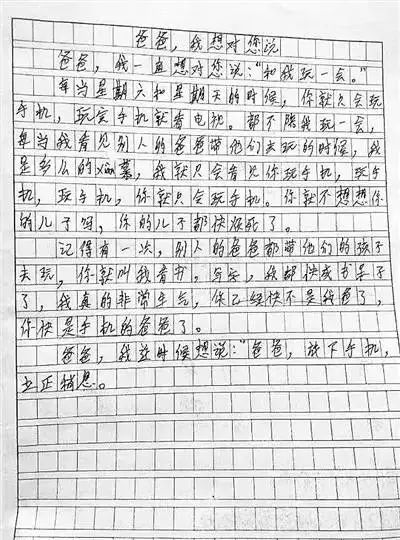 爸爸，我想对您说
爸爸，我一直想对您说："和我玩一会。"
每当星期六和星期天的时候，你就只会玩
手机，玩完手机就看电视。都不陪我玩一会，
每当我看见别人的爸爸带他们去玩的时候，我
是多么的xiàn慕，我就只会看见你玩手机，玩手
机，玩手机，你就只会玩手机。你就不想想你
的儿子吗，你的儿子都快没死了。
记得有一次，别人的爸爸都带他们的孩子
去玩，你就叫我看书，写字，我都快成书呆子
了，我真的非常生气，你已经快不是我爸了，
你快是手机的爸爸了。
爸爸，我这时候想说："爸爸，放下手机，